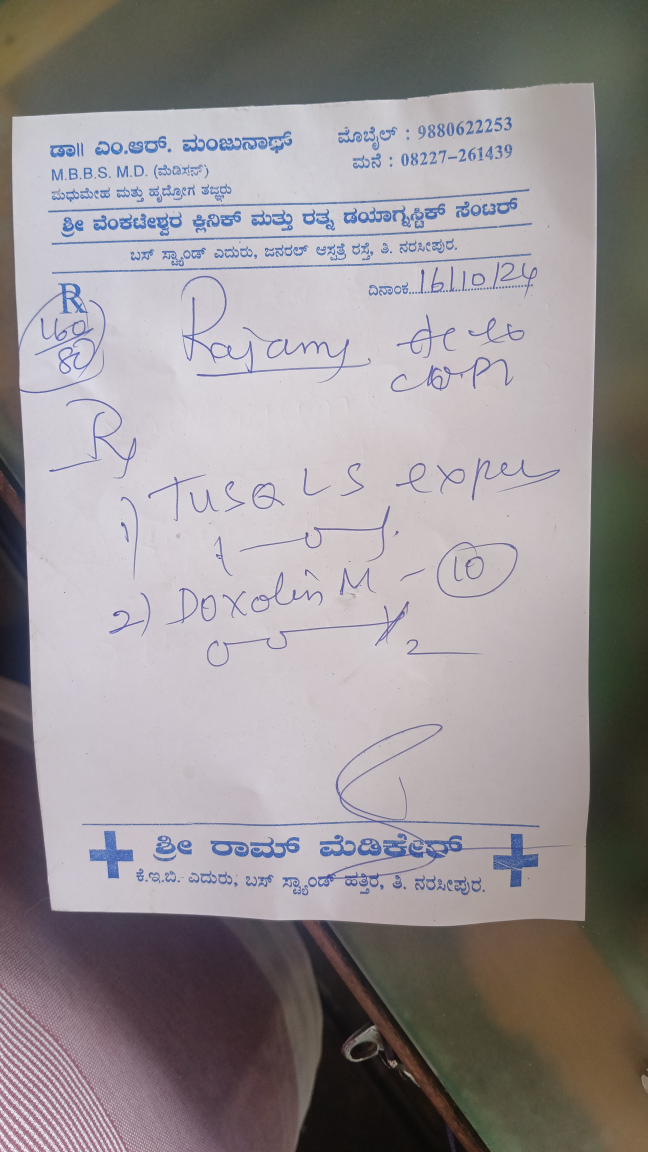 ಡಾ|| ಎಂ.ಆರ್. ಮಂಜುನಾಥ್
M.B.B.S. M.D. (ಮೆಡಿಸನ್)
ಮಧುಮೇಹ ಮತ್ತು ಹೃದ್ರೋಗ ತಜ್ಞರು
ಮೊಬೈಲ್ : 9880622253
ಮನೆ : 08227-261439
ಶ್ರೀ ವೆಂಕಟೇಶ್ವರ ಕ್ಲಿನಿಕ್ ಮತ್ತು ರತ್ನ ಡಯಾಗ್ನಸ್ಟಿಕ್ ಸೆಂಟರ್
ಬಸ್ ಸ್ಟ್ಯಾಂಡ್ ಎದುರು, ಜನರಲ್ ಆಸ್ಪತ್ರೆ ರಸ್ತೆ, ತಿ. ನರಸೀಪುರ.
Rx
ದಿನಾಂಕ 16/10/24
160/80
Rajamy
Rx
1) TUSQ LS
2) Doxolin M - 10
2
ಶ್ರೀ ರಾಮ್ ಮೆಡಿಕೇರ್
ಕೆ.ಇ.ಬಿ. ಎದುರು, ಬಸ್ ಸ್ಟ್ಯಾಂಡ್ ಹತ್ತಿರ, ತಿ. ನರಸೀಪುರ.